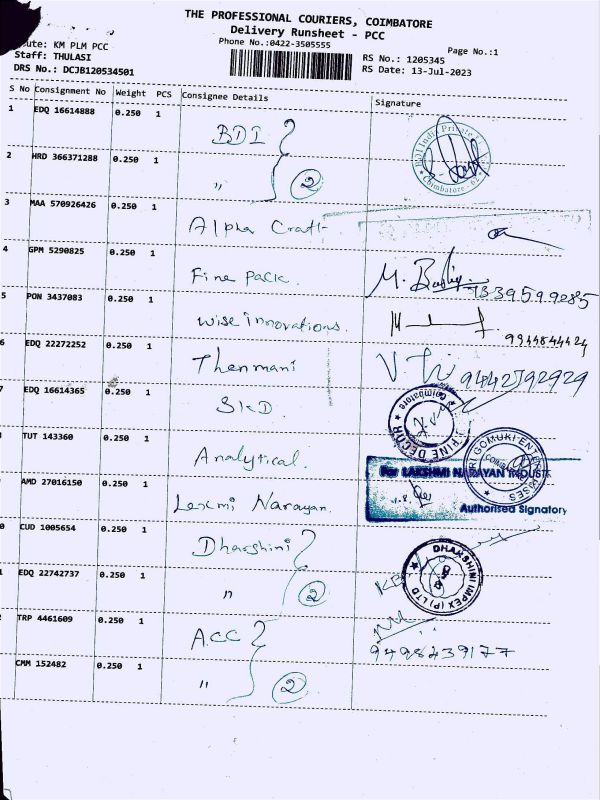 THE PROFESSIONAL COURIERS, COIMBATORE
Delivery Runsheet - PCC
Phone No.:0422-3505555
Page No.:1
ute: KM PLM PCC
Staff: THULASI
RS No.: 1205345
DRS No.: DCJB120534501
RS Date: 13-Jul-2023
S No Consignment No Weight PCS Consignee Details Signature
1 EDQ 16614888 0.250 1 BDI
2 HRD 366371288 0.250 1 " 2
Coimbatore
3 MAA 570926426 0.250 1 Alpha Craft
4 GPM 5290825 0.250 1 Fine pack.
5 PON 3437083 0.250 1 wise innovations.
6 EDQ 22272252 0.250 1 Thenmani
7 EDQ 16614365 0.250 1 SKD.
Coimbatore
FINE DECOR
TUT 143360 0.250 1 Analytical.
GOMUKI ENTERPRISES
AMD 27016150 0.250 1 Laxmi Narayan.
For LAKSHMI NARAYAN INDUST
Authorised Signatory
0 CUD 1005654 0.250 1 Dharshini
DHAKSHINI IMPEX (P) LTD
EDQ 22742737 0.250 1 " 2
TRP 4461609 0.250 1 ACC
9498439177
CMM 152482 0.250 1 " 2